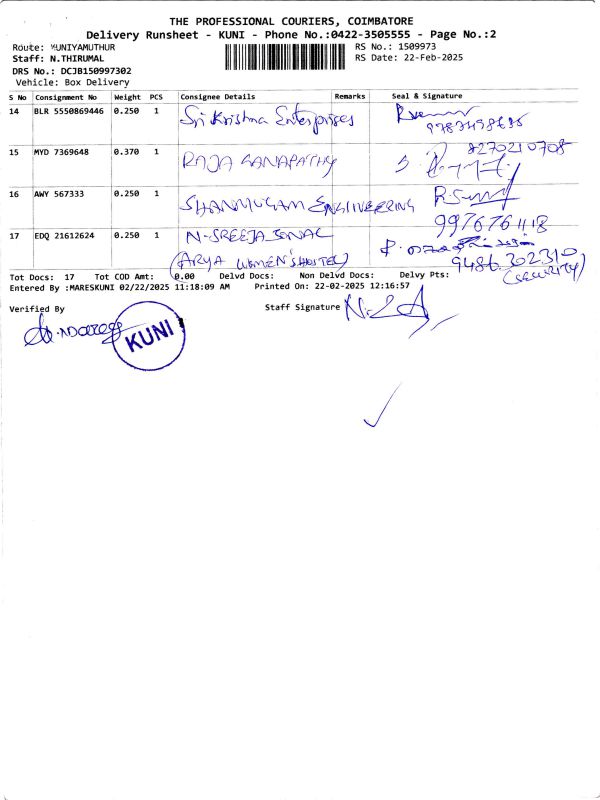 THE PROFESSIONAL COURIERS, COIMBATORE
Delivery Runsheet - KUNI - Phone No.:0422-3505555 - Page No.:2
Route: KUNIYAMUTHUR
RS No.: 1509973
Staff: N.THIRUMAL
RS Date: 22-Feb-2025
DRS No.: DCJB150997302
Vehicle: Box Delivery
S No Consignment No Weight PCS Consignee Details Remarks Seal & Signature
14 BLR 5550869446 0.250 1 Sri Krishna Enterprises
15 MYD 7369648 0.370 1 RAJA GANAPATHY 8270210708
16 AWY 567333 0.250 1 SHANMUGAM ENGINEERING
9976761118
17 EDQ 21612624 0.250 1 N-SREEJA SONAL
(ARYA WOMEN'S HOSTEL) 9486302310
(SECURITY)
Tot Docs: 17 Tot COD Amt: 0.00 Delvd Docs: Non Delvd Docs: Delvy Pts:
Entered By :MARESKUNI 02/22/2025 11:18:09 AM Printed On: 22-02-2025 12:16:57
Verified By
Staff Signature
KUNI